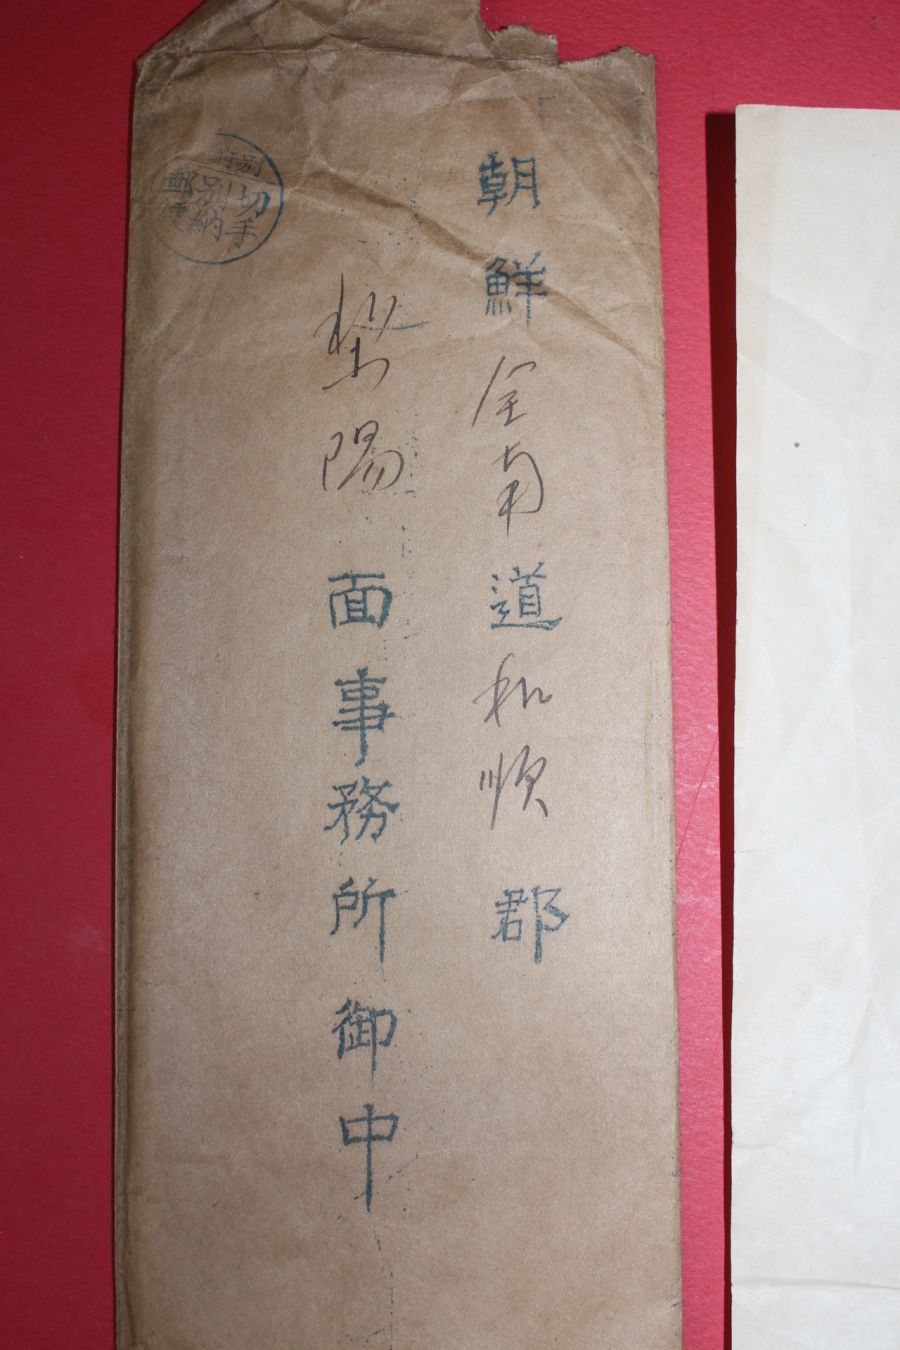 朝鮮全南道和順郡
梨陽面事務所御中
切手
別納
郵便